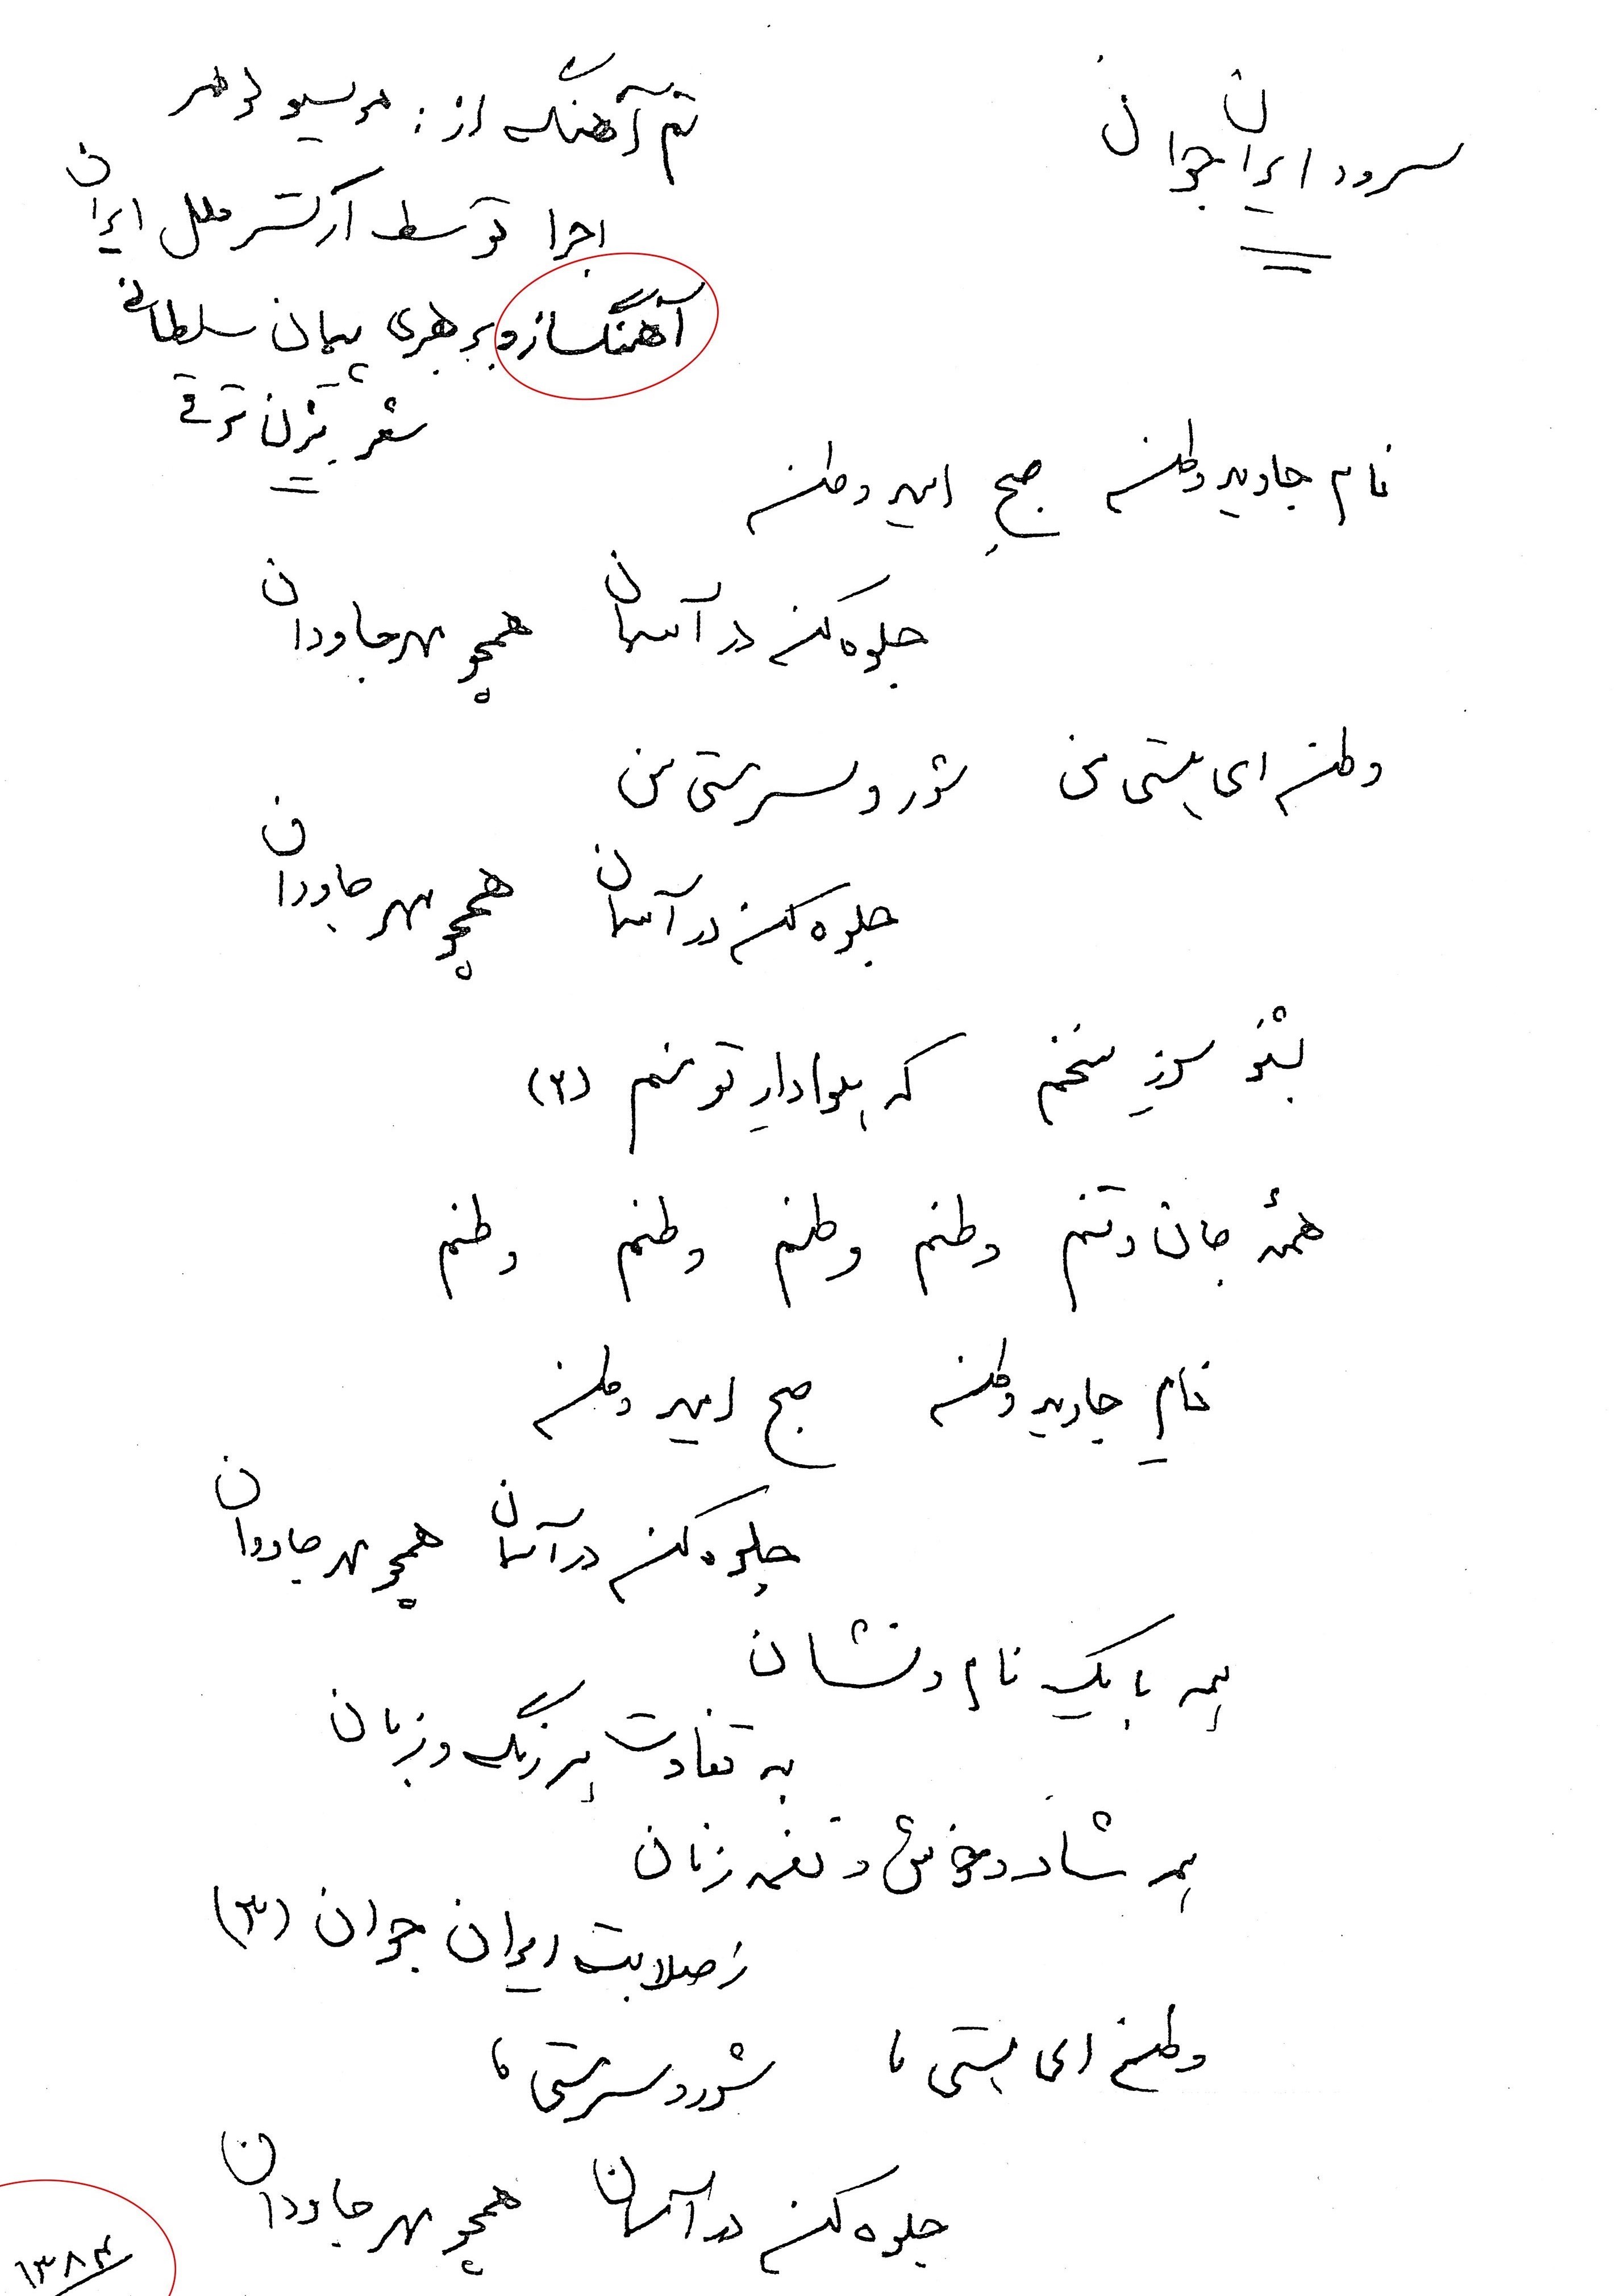 سرود ایران جوان
تم آهنگ از: موسیو لومر
اجرا توسط ارکستر ملل ایران
آهنگساز و برهبری پیمان سلطانی
شعر بیژن ترقی
نام جاوید وطن صبحِ امید وطن
جلوه کن در آسمان همچو مهر جاودان
وطن ای هستی من شور و سرمستی من
جلوه کن در آسمان همچو مهر جاودان
بشنو سوزِ سخنم که هوادارِ تو منم (۲)
همهٔ جان و تنم وطنم وطنم وطنم وطنم
نامِ جاوید وطن صبح امید وطن
جلوه کن در آسمان همچو مهر جاودان
همه با یک نام و نشان
به تفاوت هر رنگ و زبان
همه شاد و خوش و نغمه زنان
ز صلابت ایران جوان (۳)
وطنم ای هستی ما شور و سرمستی ما
جلوه کن در آسمان همچو مهر جاودان
۱۳۸۴